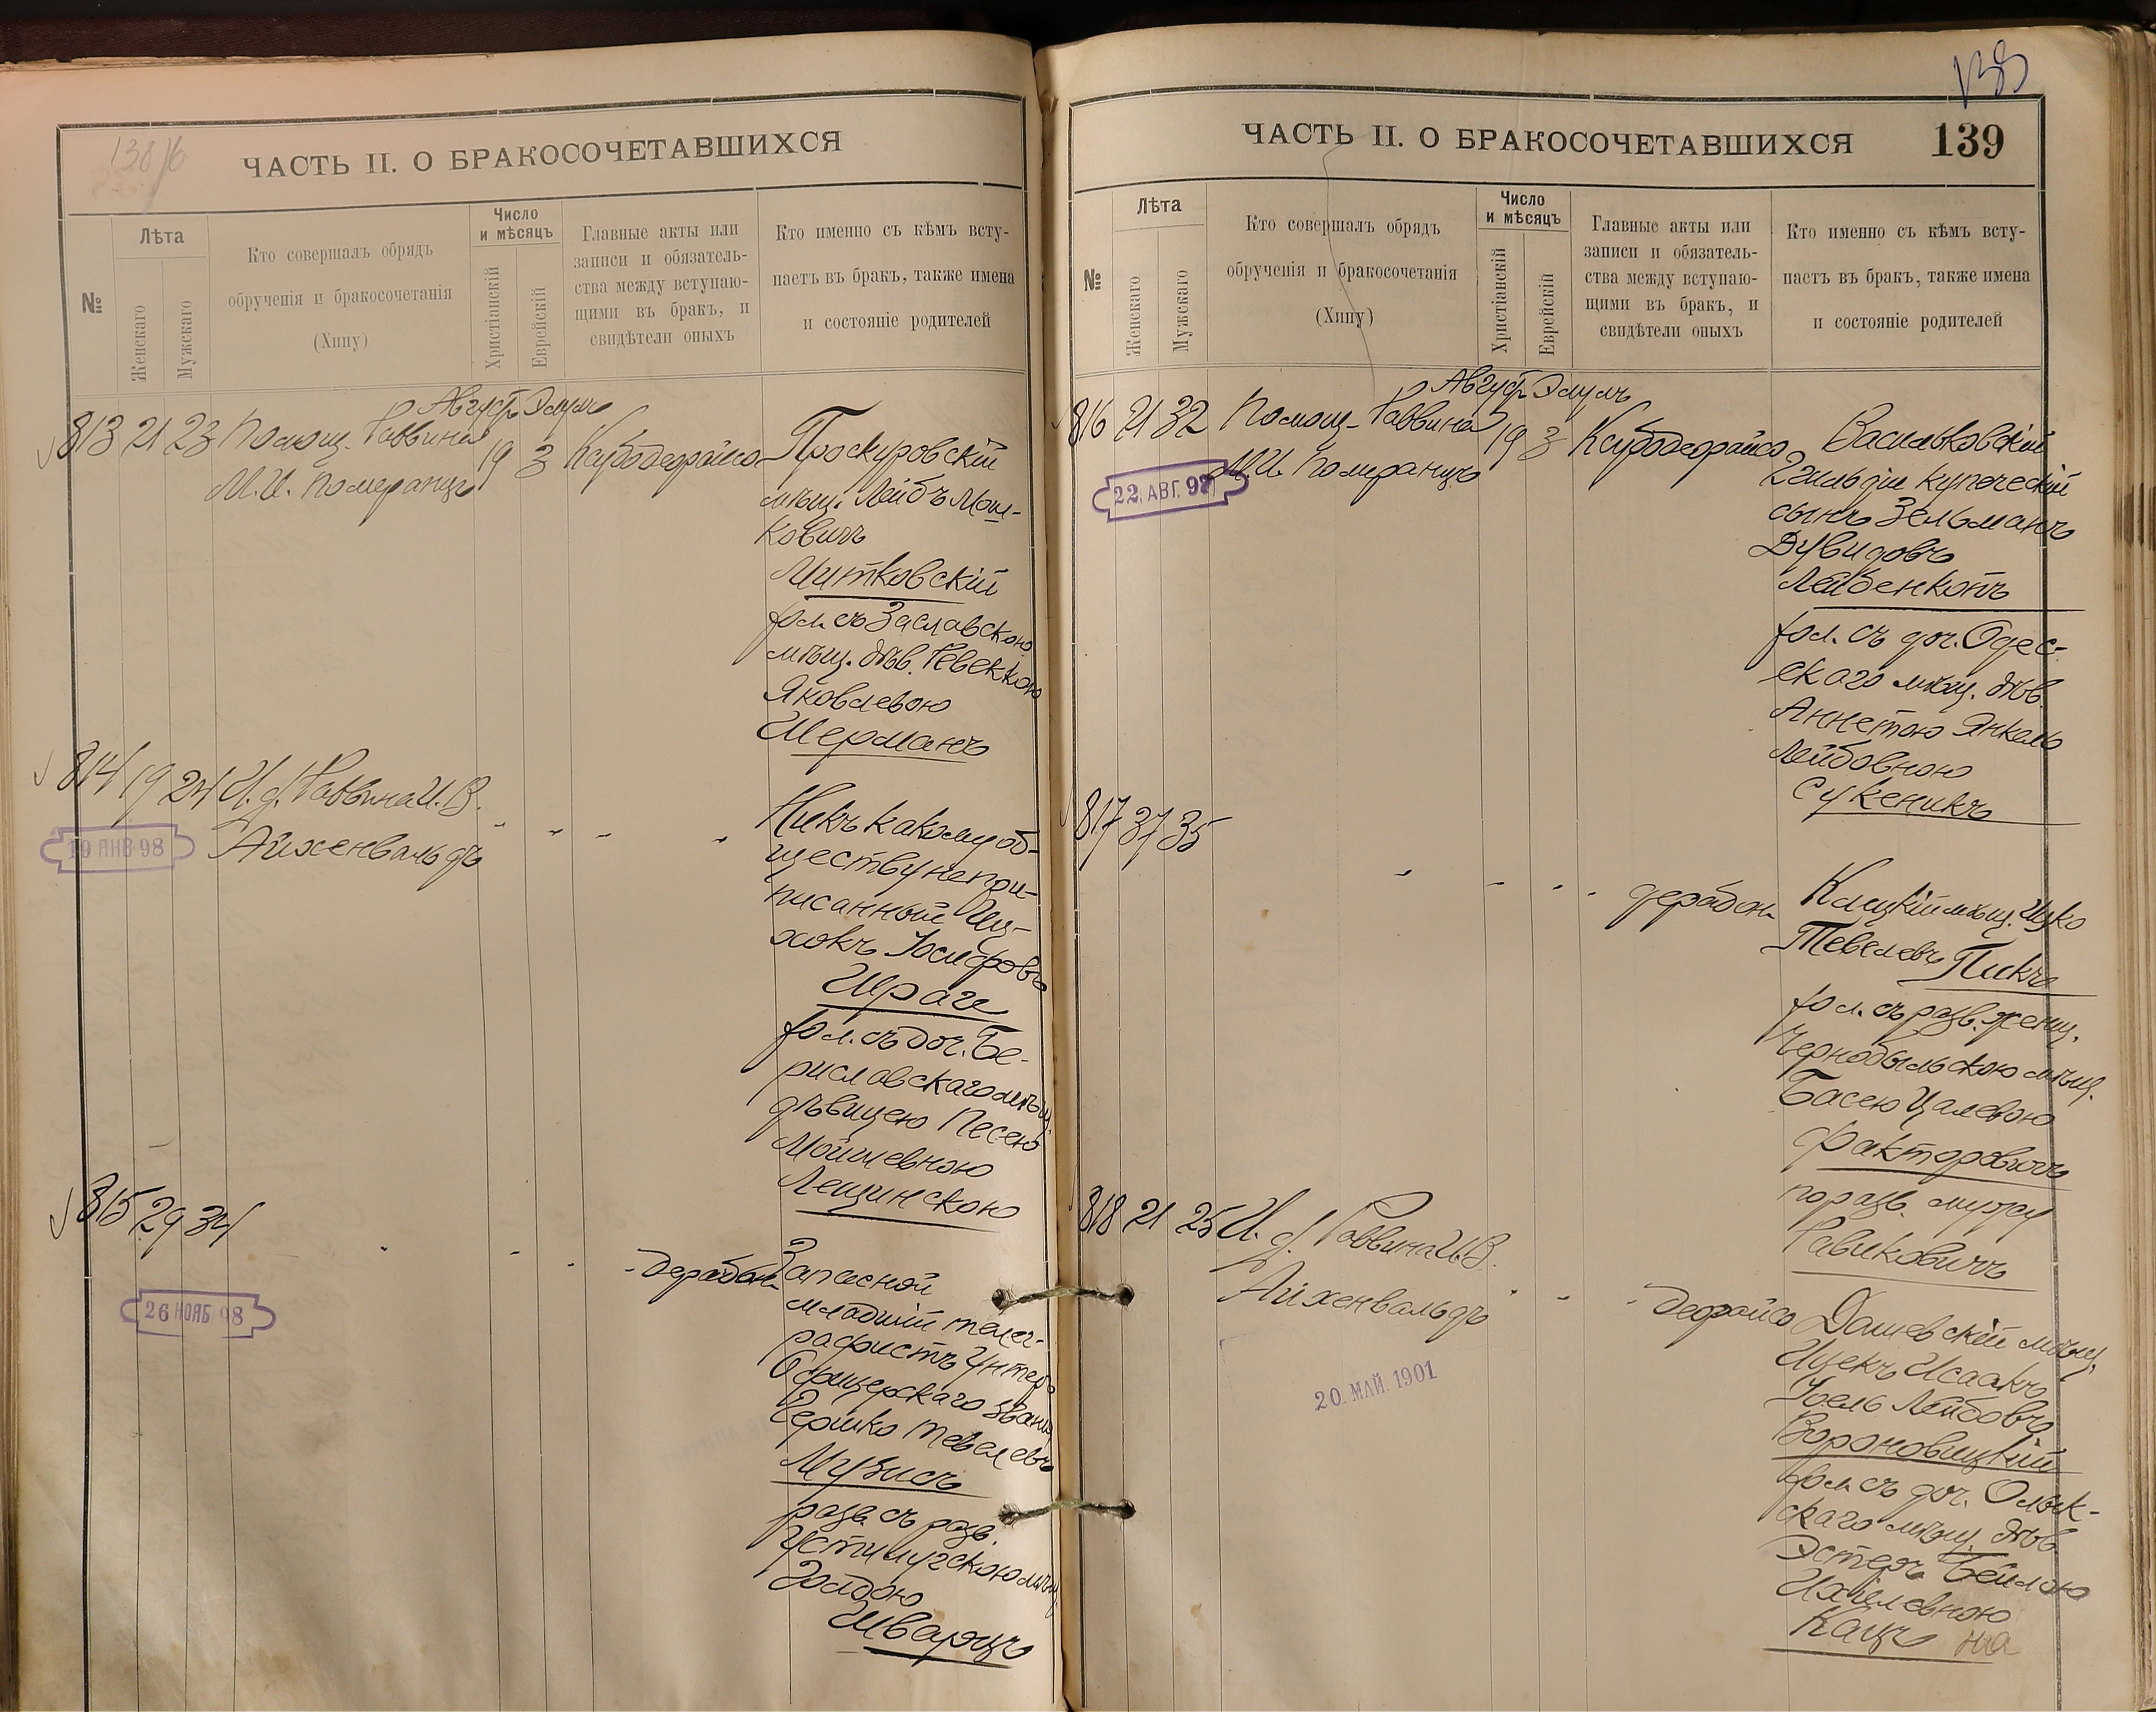 138/б
ЧАСТЬ II. О БРАКОСОЧЕТАВШИХСЯ
№
Лѣта
Женскаго
Мужскаго
Кто совершалъ обрядъ
обрученія и бракосочетанія
(Хипу)
Число
и мѣсяцъ
Христіанскій
Еврейскій
Главные акты или
записи и обязатель-
ства между вступаю-
щими въ бракъ, и
свидѣтели оныхъ
Кто именно съ кѣмъ всту-
паетъ въ бракъ, также имена
и состояніе родителей
813 21 23 Помощ. Раввина
М. И. Померанцъ
Август Элулъ
19 3 Ксубодедрайсо
Проскуровскій
мѣщ. Лейбъ Мош-
ковичъ
Митковскій
хол. съ Заславскою
мѣщ. дѣв. Ревеккою
Яковлевою
Шерманъ
814 19 24 И. д. Раввина И. В.
Айхенвальдъ
19 ЯНВ 98
Никъ какому об-
ществу непри-
писанный Иц-
хокъ Іосифовъ
Шраге
хол. съ доч. Бе-
риславскаго мѣщ.
дѣвицею Песею
Мойшевною
Лещинскою
815 29 34
26 НОЯБ 98
дерабон
Запасной
младшій телег-
рафистъ Унтеръ
Офицерскаго званія
Гершко Тевелевъ
Музисъ
разв. съ разв.
Устилугскою мѣщ.
Голдою
Шварцъ
139
ЧАСТЬ II. О БРАКОСОЧЕТАВШИХСЯ 139
№
Лѣта
Женскаго
Мужскаго
Кто совершалъ обрядъ
обрученія и бракосочетанія
(Хипу)
Число
и мѣсяцъ
Христіанскій
Еврейскій
Главные акты или
записи и обязатель-
ства между вступаю-
щими въ бракъ, и
свидѣтели оныхъ
Кто именно съ кѣмъ всту-
паетъ въ бракъ, также имена
и состояніе родителей
816 21 32 Помощ. Раввина
М. И. Померанцъ
22. АВГ. 97
Август Элулъ
19 3 Ксубодедрайсо
Васильковскій
2 гильдіи купеческій
сынъ Зельманъ
Дувидовъ
Лейбенкопъ
хол. съ доч. Одес-
скаго мѣщ. дѣв.
Аннетою Янкель
Лейбовною
Сукеникъ
817 37 35
дерабон
Клецкій мѣщ. Ицко
Тевелевъ Пикъ
хол. съ разв. женщ.
Чернобыльскою мѣщ.
Басею Цалевою
Факторовичъ
по разв. мужу
Равиковичъ
818 21 25 И. д. Раввина И. В.
Айхенвальдъ
20. МАЙ. 1901
дедрайсо
Дашевскій мѣщ.
Ицекъ Исаакъ
Іоель Лейбовъ
Вороновицкій
хол. съ доч. Олык-
скаго мѣщ. дѣв.
Эстеръ Бейлою
Ихелевною
Кацъ на